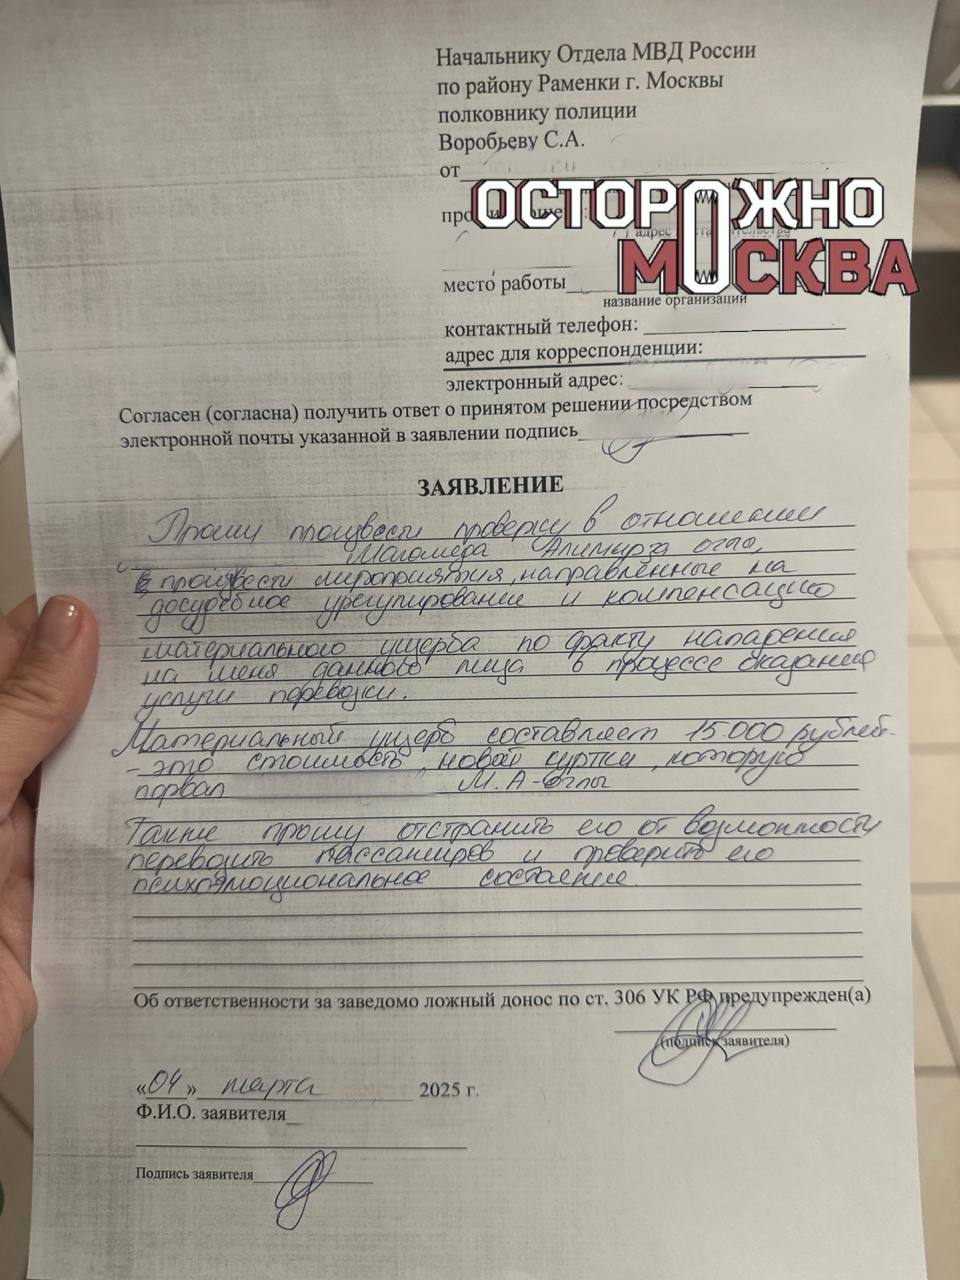 Начальнику Отдела МВД России
по району Раменки г. Москвы
полковнику полиции
Воробьеву С.А.
от
ОСТОРОЖНО
МОСКВА
место работы
название организации
контактный телефон:
адрес для корреспонденции:
электронный адрес:
Согласен (согласна) получить ответ о принятом решении посредством
электронной почты указанной в заявлении подпись
ЗАЯВЛЕНИЕ
Прошу произвести проверку в отношении
Магомеда Алимирза оглы,
произвести мероприятия, направленные на
досудебное урегулирование и компенсацию
материального ущерба по факту нападения
на меня данного лица в процессе оказания
услуги перевозки.
Материальный ущерб составляет 15.000 рублей-
- это стоимость новой куртки, которую
порвал М.А-Оглы
Также прошу отстранить его от возможности
перевозить пассажиров и проверить его
психоэмоциональное состояние.
Об ответственности за заведомо ложный донос по ст. 306 УК РФ предупрежден(а)
(подпись заявителя)
«04» марта 2025 г.
Ф.И.О. заявителя
Подпись заявителя